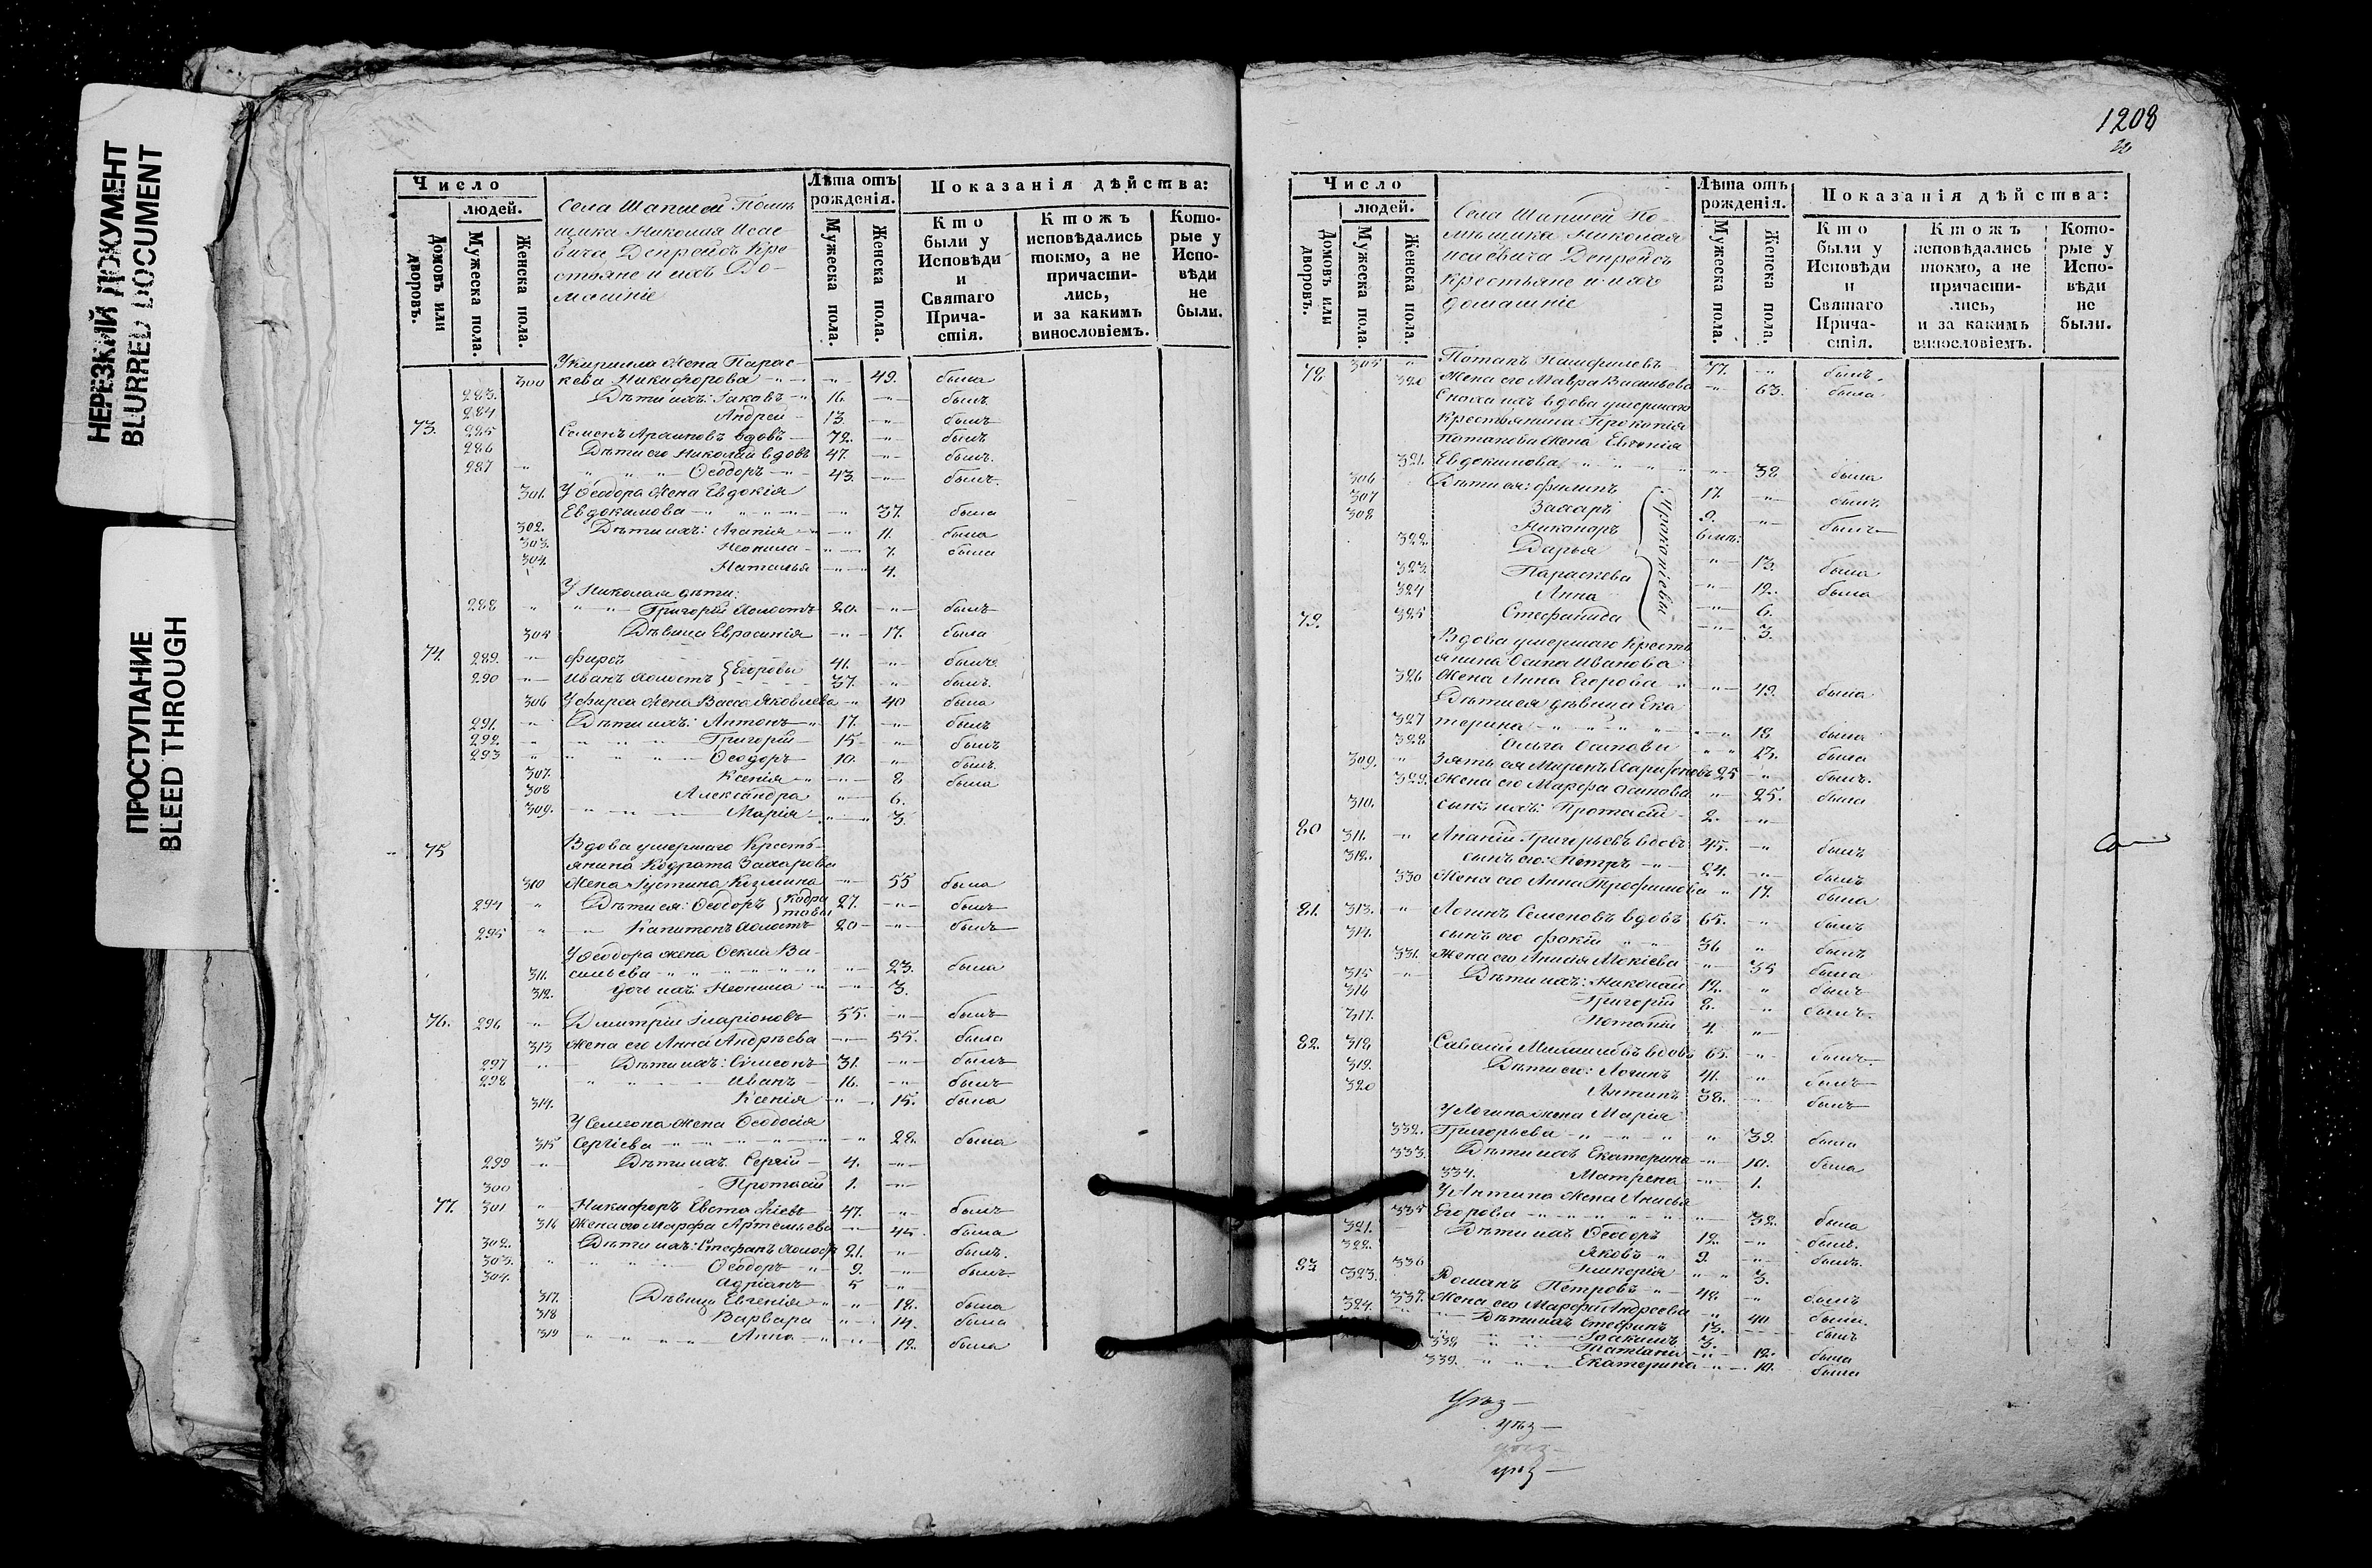 НЕРЕЗКИЙ ДОКУМЕНТ
BLURRED DOCUMENT
ПРОСТУПАНИЕ
BLEED THROUGH
Число
людей.
Домовъ или дворовъ.
Мужеска пола.
Женска пола.
Села Шапшей Помѣ
щика Николая Исае
вича Депрейсъ Кре
стьяне и ихъ До-
машніе
Лѣта отъ рожденія.
Мужеска пола.
Женска пола.
Показанія дѣйства:
Кто были у Исповѣди и Святаго Прича-стія.
Ктожъ исповѣдались токмо, а не причасти-лись, и за какимъ винословіемъ.
Кото-рые у Испо-вѣди не были.
У Кирилла жена Парас-
300 кева Никифорова 49. была
283. Дѣти ихъ: Іаковъ 16. былъ
284 Андрей 13. былъ
73. 285 Семенъ вдовъ 72. былъ
286 Дѣти его Николай вдовъ 47. былъ.
287 Ѳеодоръ 43. былъ.
301. У Ѳеодора жена Евдокія
Евдокимова 37. была
302. Дѣти ихъ: Агапія 11. была
303. Неонила 7. была
304. Наталья 4.
У Николая дѣти:
288 Григорій холостъ 20. былъ
305 Дѣвица Евросинія 17. была
74. 289. Фирсъ 41. былъ
290 Иванъ холостъ } Егоровы 37. былъ.
306 У Фирса жена Васса Яковлева 40 была
291. Дѣти ихъ: Антонъ 17. былъ
292. Григорій 15 былъ
293 Ѳеодоръ 10. былъ.
307. Ксенія 8 была
308 Александра 6.
309. Марія 3.
75 Вдова умершаго Кресть-
янина Кодрата Захарова
310 жена Іустина Козмина 55 была
294 Дѣти ея: Ѳеодоръ } Кодра 27. былъ
товы
295 Капитонъ холостъ 20 былъ
У Ѳеодора жена Ва-
311. сильева 23. была
312. дочь ихъ: Неонила 3.
76. 296 Димитрій Іларіоновъ 55. былъ
313 жена его Анна Андрѣева 55. была
297 Дѣти ихъ: Сѵмеонъ 31. былъ
298 Иванъ 16. былъ
314. Ксенія 15. была
У Семеона жена Ѳеодосія
315 Сергіева 28. была
299 Дѣти ихъ. Сергій 4.
300 Протасій 1.
77. 301 Никифоръ Евстафіевъ 47. былъ
316 жена его Марфа Артемьева 45. была
302. Дѣти ихъ: Стефанъ холостъ 21. былъ.
303. Ѳеодоръ 9. былъ.
304. Адріанъ 5
317. Дѣвица Евгенія 18. была
318 Варвара 14. была
319 Анна 12. была
1208
Число
людей.
Домовъ или дворовъ.
Мужеска пола.
Женска пола.
Села Шапшей По-
мѣщика Николая
Исаевича Депрейсъ
Крестьяне и ихъ
домашніе
Лѣта отъ рожденія.
Мужеска пола.
Женска пола.
Показанія дѣйства:
Кто были у Исповѣди и Святаго Прича-стія.
Ктожъ исповѣдались токмо, а не причасти-лись, и за какимъ винословіемъ.
Кото-рые у Испо-вѣди не были.
78 305 Потапъ Памфиловъ 77. былъ.
320 жена его Мавра Васильева 63. была
Сноха ихъ вдова умершаго
Крестьянина Прокопія
Потапова жена Евгенія
321. Евдокимова 38 была
306 Дѣти ея: Филипъ 17. былъ
307 Захаръ 9. былъ
308 Никоноръ 6 мѣс:
322. Дарья 13. была
323. Параскева 12. была
324 Анна 6.
325 Стефанида 3.
Прокопіевы
79. Вдова умершаго Кресть
янина Осипа Иванова
326 жена Анна Егорова 49. была
Дѣти ея дѣвица Ека
327 терина 18 была
328 Ольга Осиповы 13. была
309. Зять ея Миронъ Харитоновъ 25 былъ.
329. жена его Марфа Осипова 25. была
310. сынъ ихъ: Протасій 2.
80 311. Ананій Григорьевъ вдовъ 45. былъ
312. сынъ его: Петръ 24. былъ
330 жена его Анна Трофимова 17. была
81. 313. Логинъ Семеновъ вдовъ 65. былъ
314. сынъ его Фокій 36 былъ
331. жена его Анисія Мокіева 35 была
315 Дѣти ихъ: Николай 12. былъ
316 Григорій 8. былъ.
317. Потапій 4.
82. 318 Савелій вдовъ 65. былъ
319. Дѣти его: Логинъ 41. былъ
320 Антипъ 38. былъ
У Логина жена Марія
332. Григорьева 39. была
333. Дѣти ихъ Екатерина 10. была
334. Матрена 1.
У Антипа жена Анисья
335 Егорова 32. была
321. Дѣти ихъ Ѳеодоръ 12. былъ.
322. Яковъ 9. былъ.
336 Гликерія 3.
83 323. Романъ Петровъ 42. былъ
337. жена его Марфа Андреева 40 была.
324. Дѣти ихъ Стефанъ 13. былъ
Іоакимъ 3.
338 Татіана 12. была
339. Екатерина 10. была